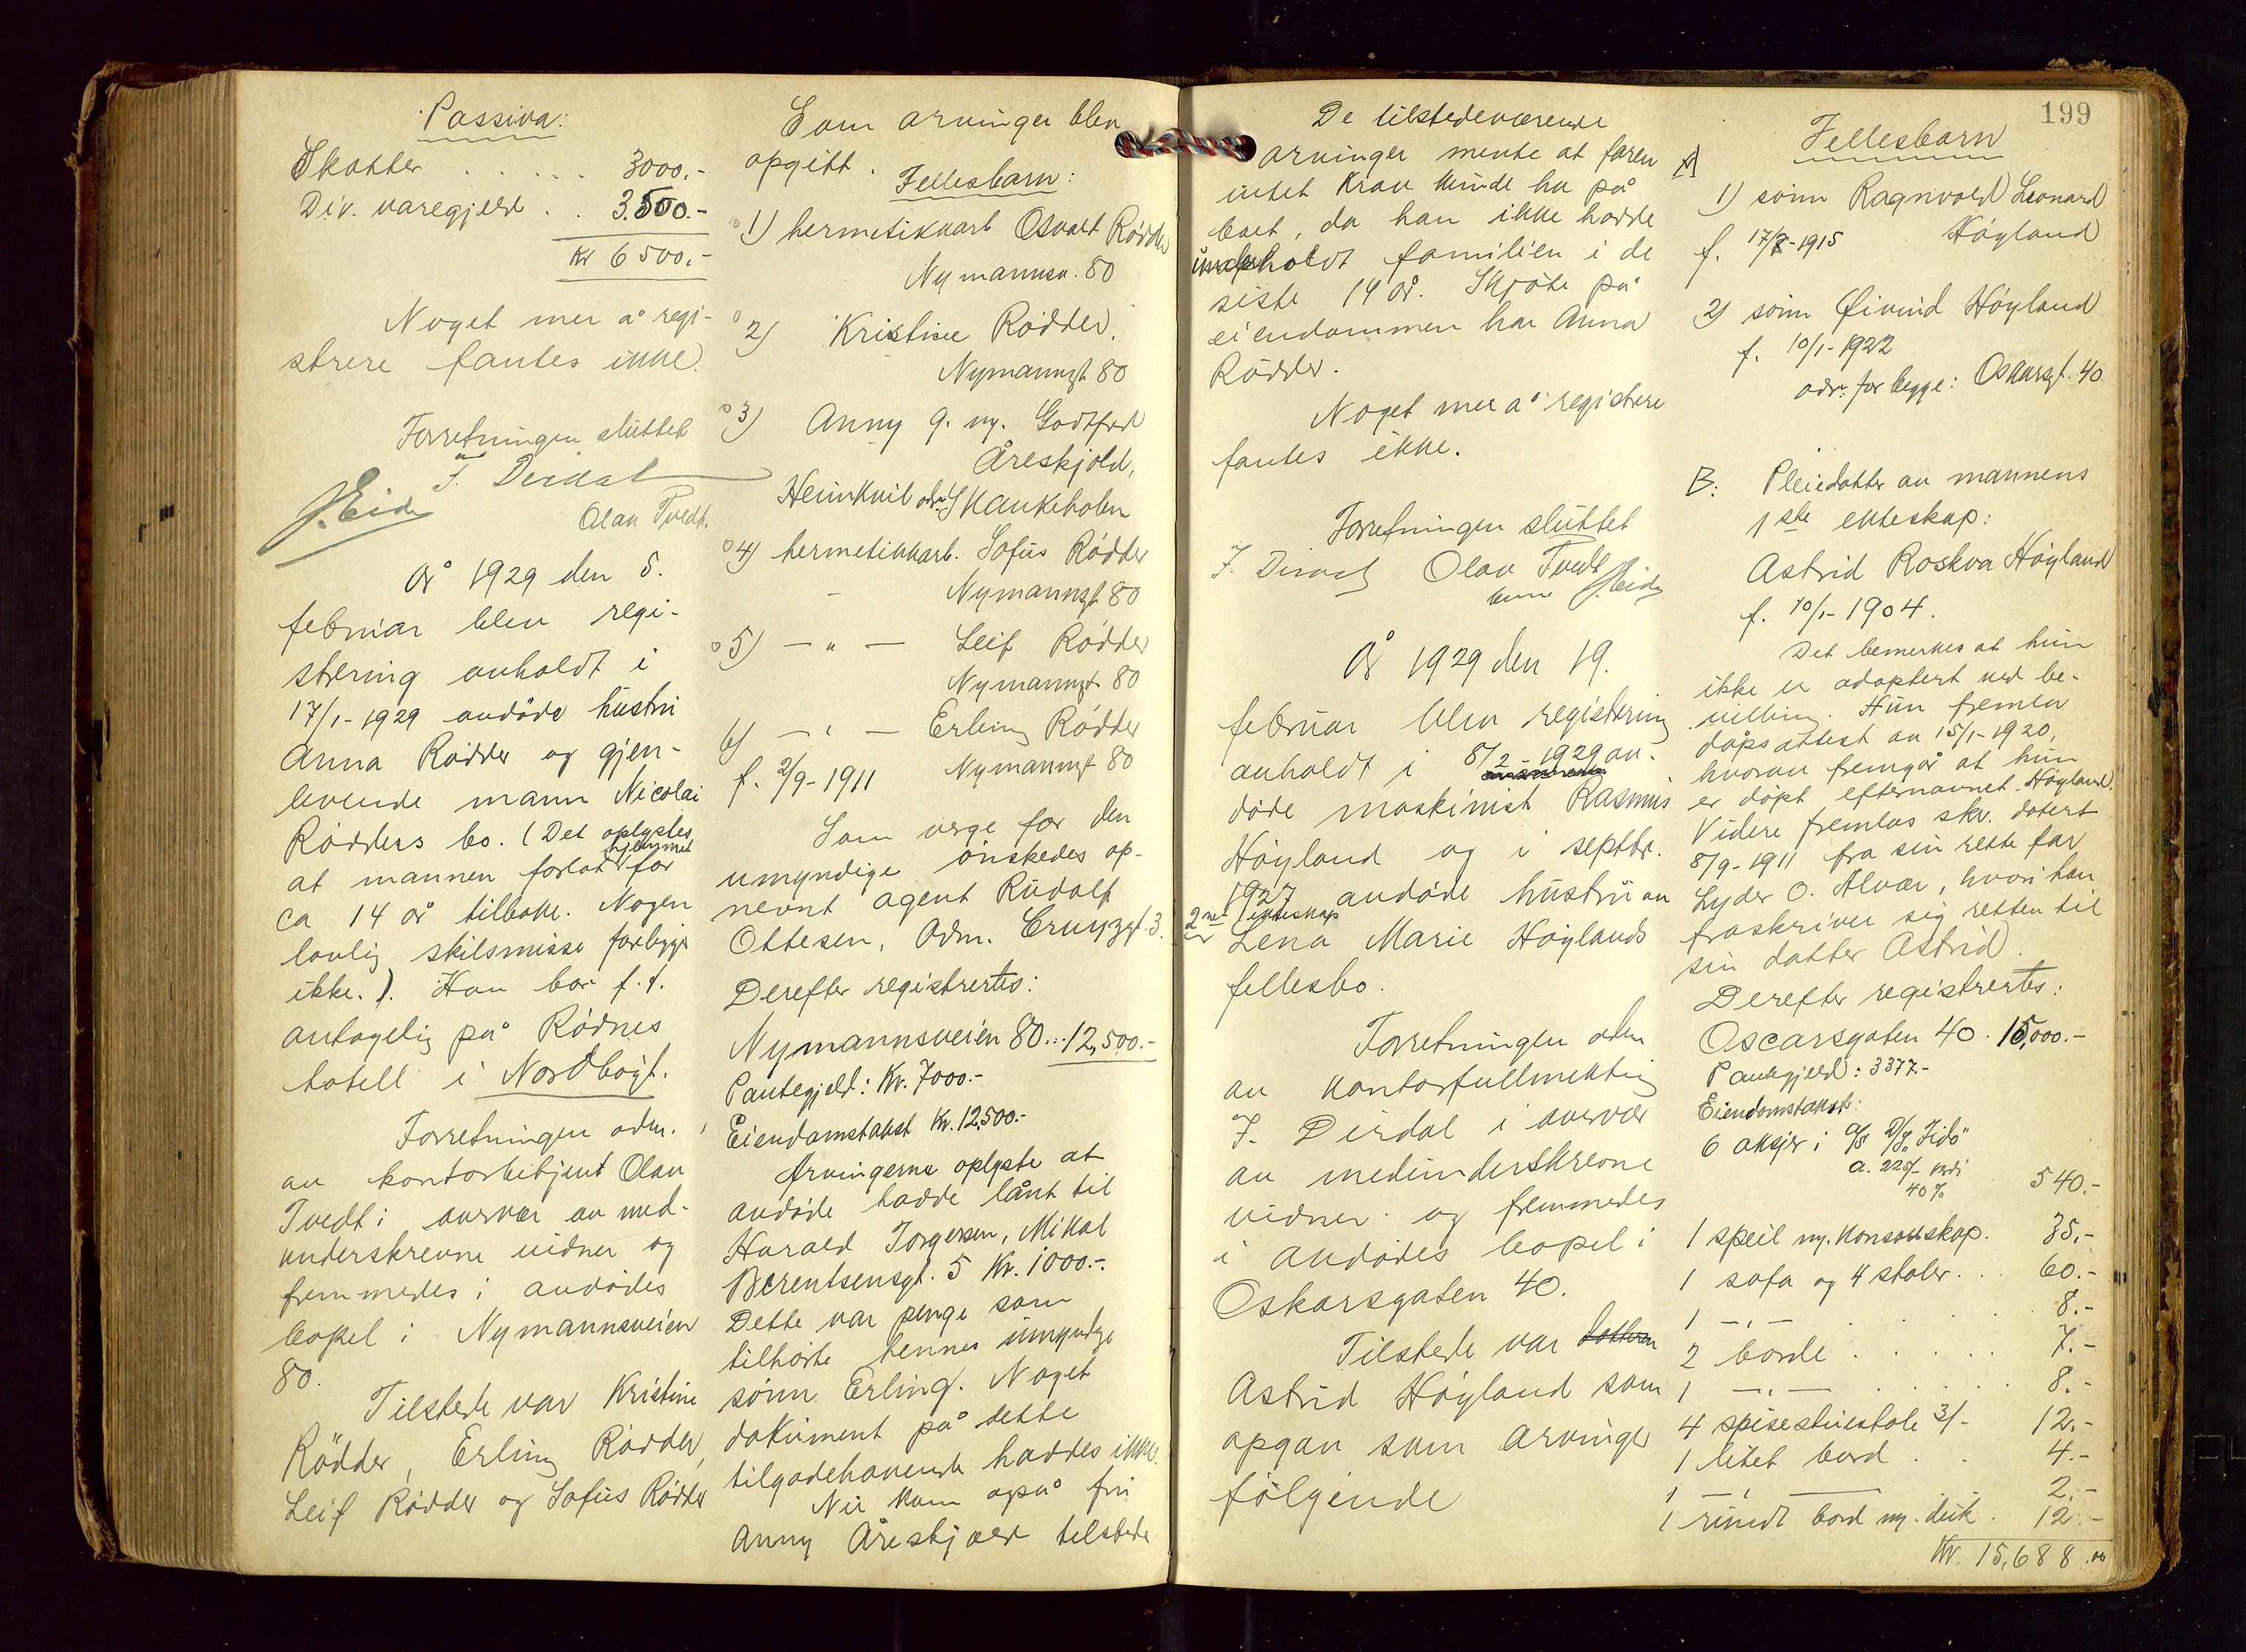 Passiva:
Skatter . . . . . 3000.-
Div. varegjeld . . 3.500.-
Kr 6500.-
Noget mer å regi-
strere fantes ikke.
Forretningen sluttet
T. Dirdal
J. Eide
Olav Tvedt.
År 1929 den 5.
februar blev regi-
strering avholdt i
17/1-1929 avdøde hustru
Anna Rødder og gjen-
levende mann Nicolai
Rødders bo. (Det oplystes
at mannen forlot hjemmet for
ca 14 år tilbake. Nogen
lovlig skilsmisse foreligger
ikke.). Han bor f.t.
antagelig på Rødnes
hotell i Nordbøgt.
Forretningen adm.
av kontorbetjent Olav
Tvedt i overvær av med-
underskrevne vidner og
fremmedes i avdødes
bopel i Nymannsveien
80.
Tilstede var Kristine
Rødder, Erling Rødder,
Leif Rødder og Sofus Rødder
Som arvinger blev
opgitt.
Fellesbarn:
1) hermetikkarb Osvald Rødder
Nymannsv. 80
2) Kristine Rødder.
Nymannsgt 80
3) Anny g. m. Godtfred
Åreskjold,
Heimkvil adr. Skankeholen
4) hermetikkarb. Sofus Rødder
Nymannsgt 80
5) — " — Leif Rødder
Nymannsgt 80
6) — " — Erling Rødder
f. 2/9-1911 Nymannsgt 80
Som verge for den
umyndige ønskedes op-
nevnt agent Rudolf
Ottesen, Adm. Cruysgt. 3.
Derefter registrertes:
Nymannsveien 80...12,500.-
Pantegjeld: Kr. 7000.-
Eiendomstakst Kr. 12,500.-
Arvingerne oplyste at
avdøde hadde lånt til
Harald Torgersen, Mikal
Berentsensgt. 5 Kr. 1000.-.
Dette var penge som
tilhørte hennes umyndige
sønn Erling. Noget
dokument på dette
tilgodehavende haddes ikke.
Nu kom også fru
Anny Åreskjold tilstede
De tilstedeværende
arvinger mente at faren
intet krav kunde ha på
boet, da han ikke hadde
underholdt familien i de
siste 14 år. Skjøte på
eiendommen har Anna
Rødder.
Noget mer å registrere
fantes ikke.
Forretningen sluttet
T. Dirdal Olav Tvedt
J. Eide
År 1929 den 19.
februar blev registrering
avholdt i 8/2-1929 av-
døde maskinist Rasmus
Høyland og i septbr.
1927 avdøde hustru av
2net ekteskap
Lena Marie Høylands
fellesbo.
Forretningen adm
av kontorfullmektig
T. Dirdal i overvær
av medunderskrevne
vidner og fremmedes
i avdødes bopel i
Oskarsgaten 40.
Tilstede var datteren
Astrid Høyland som
opgav som arvinger
følgende
199
A) Fellesbarn
1) sønn Ragnvald Leonard
f. 17/8-1915 Høyland
2) sønn Øivind Høyland
f. 10/1-1922
adr. for begge: Oskarsgt. 40
B: Pleiedatter av mannens
1ste ekteskap:
Astrid Roskva Høyland
f. 10/1-1904.
Det bemerkes at hun
ikke er adoptert ved be-
villing. Hun fremla
dåpsattest av 15/1-1920,
hvorav fremgår at hun
er døpt efternavnet Høyland.
Videre fremlas skr. datert
8/9-1911 fra sin rette far
Lyder O. Alvær, hvori han
fraskriver sig retten til
sin datter Astrid.
Derefter registrertes:
Oscarsgaten 40 . 15,000.-
Pantegjeld: 3377.-
Eiendomstakst:
6 aksjer i A/S D/S "Fido"
a. 225/- verdi
40% 540.-
1 speil m. konsolskap. 35.-
1 sofa og 4 stoler . . 60.-
1 — " — . . . . 8.-
2 borde . . . . . 7.-
1 — " — . . . . . 8.-
4 spisestuestole 3/- 12.-
1 litet bord . . 4.-
1 — " — 2.-
1 rundt bord m. duk . 12.-
Kr. 15,688.00